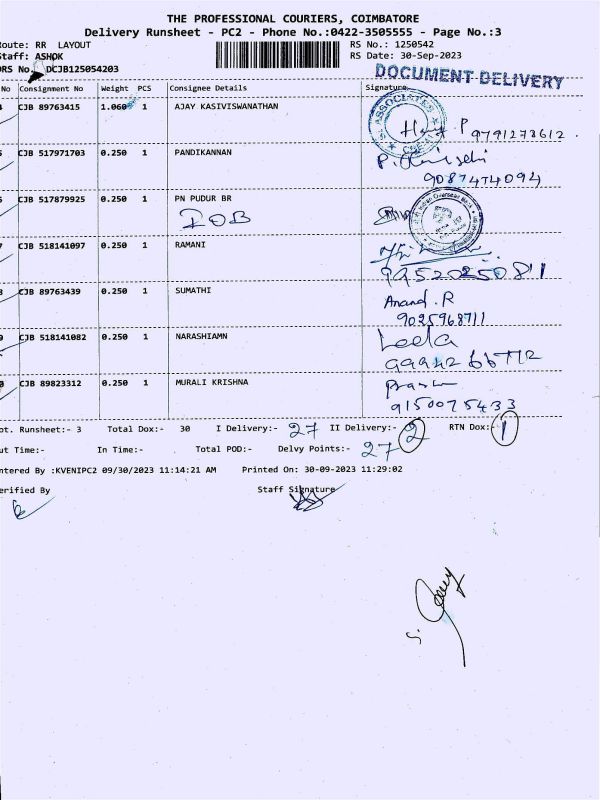 THE PROFESSIONAL COURIERS, COIMBATORE
Delivery Runsheet - PC2 - Phone No.:0422-3505555 - Page No.:3
oute: RR LAYOUT
RS No.: 1250542
taff: ASHOK
RS Date: 30-Sep-2023
DRS No. DCJB125054203
DOCUMENT DELIVERY
No Consignment No Weight PCS Consignee Details Signature
CJB 89763415 1.060 1 AJAY KASIVISWANATHAN
ASSOCIATES
9791273612.
CJB 517971703 0.250 1 PANDIKANNAN
9087474094
CJB 517879925 0.250 1 PN PUDUR BR
IOB
Indian Overseas Bank
CJB 518141097 0.250 1 RAMANI
99520250811
CJB 89763439 0.250 1 SUMATHI
Anand.R
9025968711
CJB 518141082 0.250 1 NARASHIAMN
Leela
CJB 89823312 0.250 1 MURALI KRISHNA
9150075433
ot. Runsheet:- 3 Total Dox:- 30 I Delivery:- 27 II Delivery:- 2 RTN Dox:- 1
ut Time:- In Time:- Total POD:- Delvy Points:- 27
ntered By :KVENIPC2 09/30/2023 11:14:21 AM Printed On: 30-09-2023 11:29:02
erified By Staff Signature